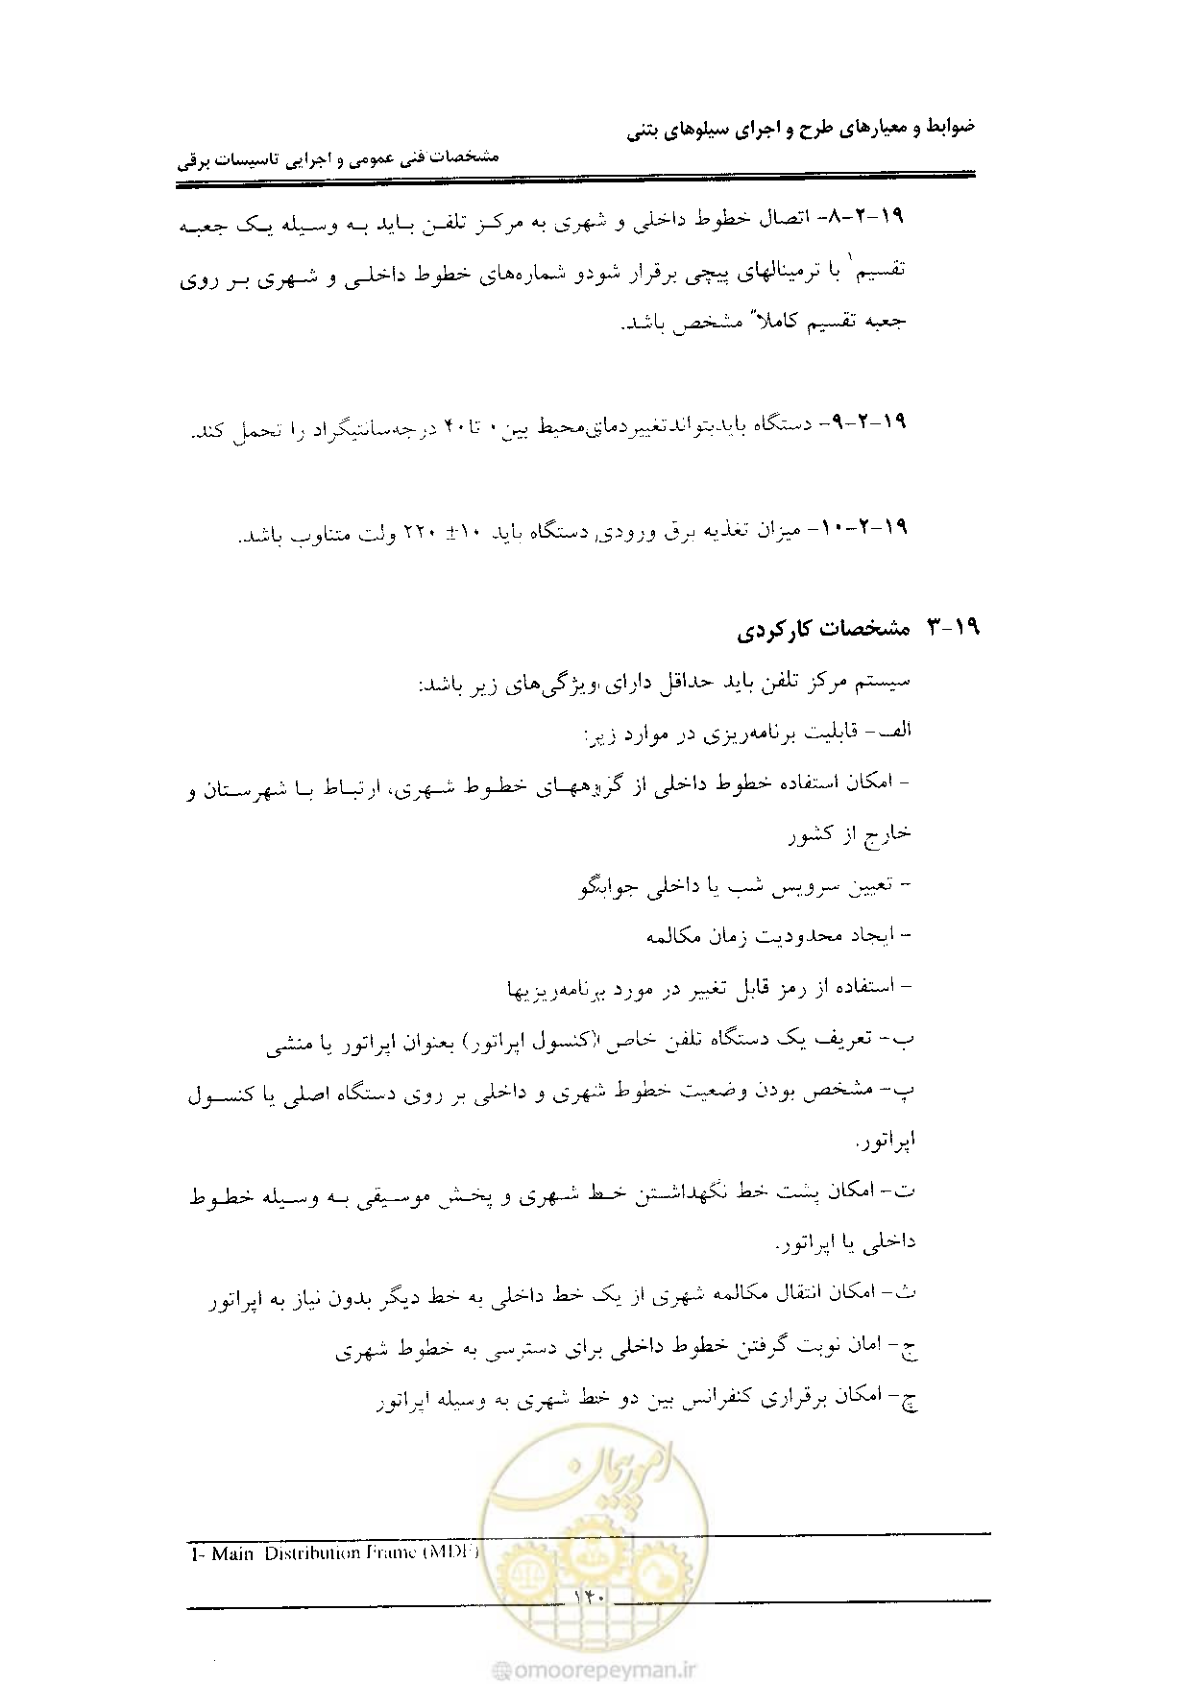 ضوابط و معیارهای طرح و اجرای سیلوهای بتنی
مشخصات فنی عمومی و اجرایی تاسیسات برقی
۱۹-۲-۸- اتصال خطوط داخلی و شهری به مرکز تلفن باید به وسیله یک جعبه
تقسیم۱ با ترمینالهای پیچی برقرار شودو شماره‌های خطوط داخلی و شهری بر روی
جعبه تقسیم کاملا" مشخص باشد.
۱۹-۲-۹- دستگاه بایدبتواندتغییردمای‌محیط بین۰ تا۴۰ درجه‌سانتیگراد را تحمل کند.
۱۹-۲-۱۰- میزان تغذیه برق ورودی دستگاه باید ۱۰± ۲۲۰ ولت متناوب باشد.
۱۹-۳ مشخصات کارکردی
سیستم مرکز تلفن باید حداقل دارای ویژگی‌های زیر باشد:
الف- قابلیت برنامه‌ریزی در موارد زیر:
- امکان استفاده خطوط داخلی از گروههای خطوط شهری، ارتباط با شهرستان و
خارج از کشور
- تعیین سرویس شب یا داخلی جوابگو
- ایجاد محدودیت زمان مکالمه
- استفاده از رمز قابل تغییر در مورد برنامه‌ریزیها
ب- تعریف یک دستگاه تلفن خاص (کنسول اپراتور) بعنوان اپراتور یا منشی
پ- مشخص بودن وضعیت خطوط شهری و داخلی بر روی دستگاه اصلی یا کنسول
اپراتور.
ت- امکان پشت خط نگهداشتن خط شهری و پخش موسیقی به وسیله خطوط
داخلی یا اپراتور.
ث- امکان انتقال مکالمه شهری از یک خط داخلی به خط دیگر بدون نیاز به اپراتور
ج- امان نوبت گرفتن خطوط داخلی برای دسترسی به خطوط شهری
چ- امکان برقراری کنفرانس بین دو خط شهری به وسیله اپراتور
امور پیمان
1- Main Distribution Frame (MDF)
۱۴۰
@omoorepeyman.ir